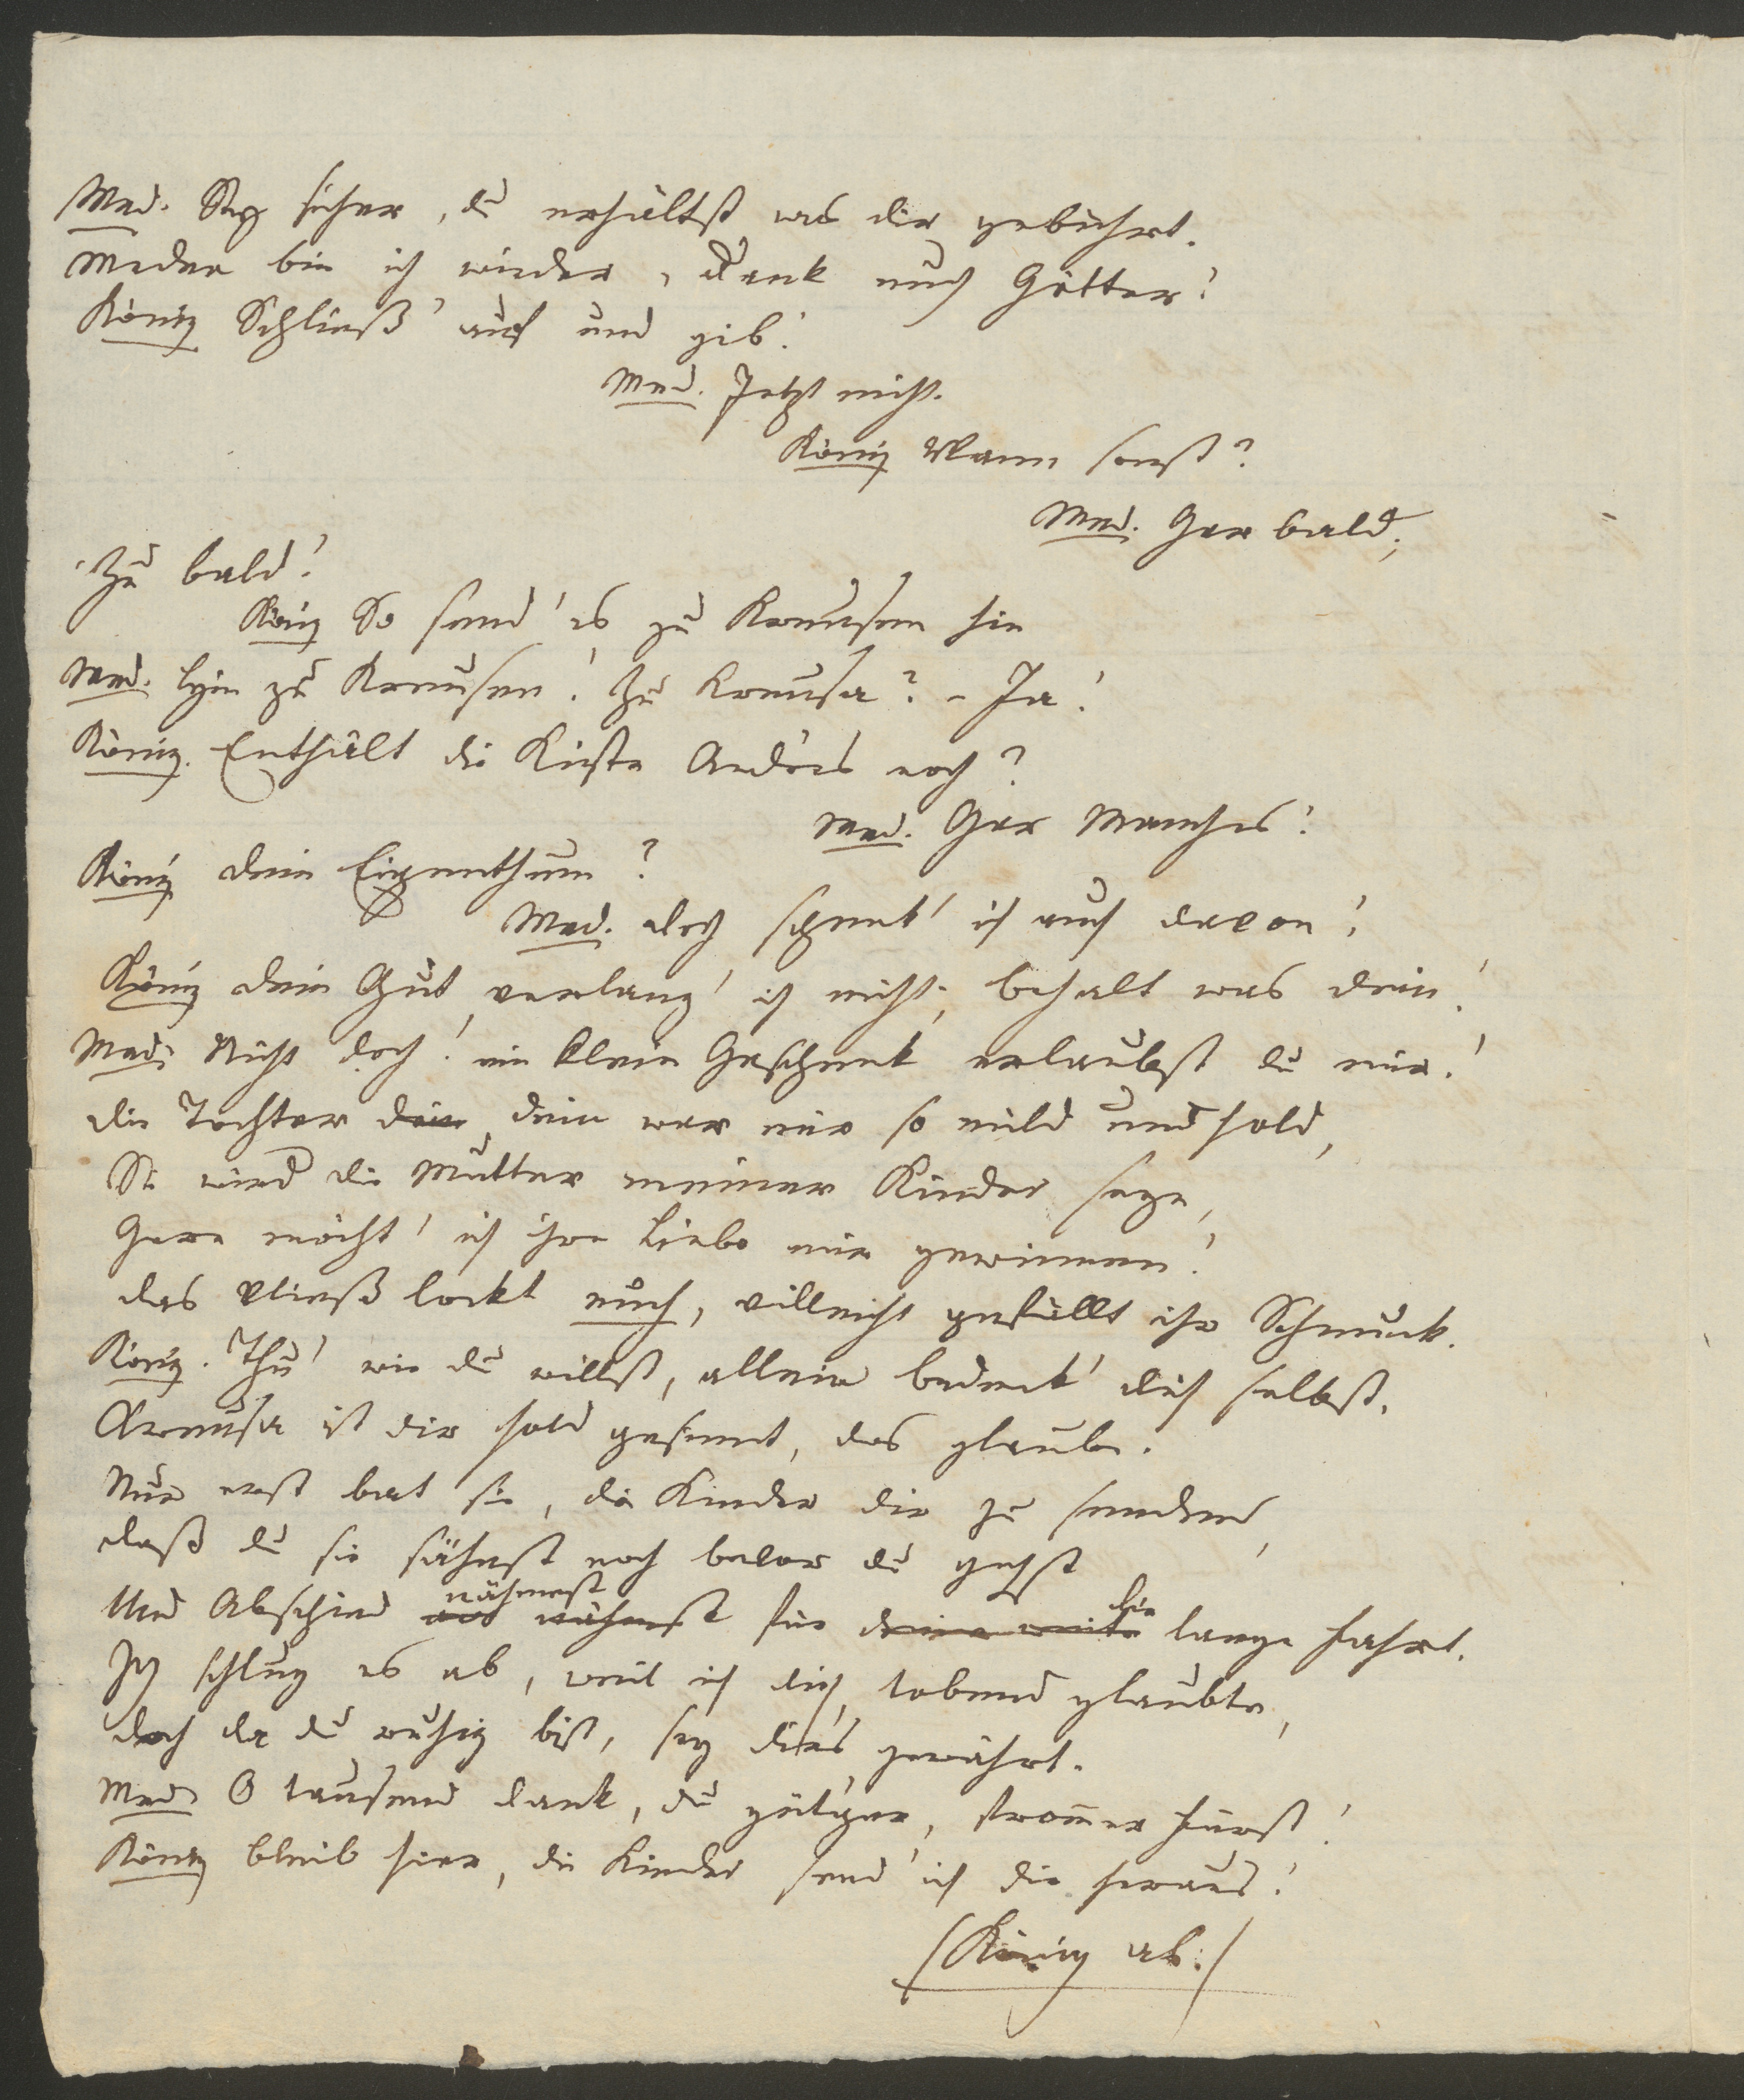 Med. Sey sicher, du erhältst was dir gebührt.
Medea bin ich wieder, Dank euch Götter!
König Schließ' auf und gib!
Med. Jetzt nicht.
König Wann sonst?
Med. Gar bald;
Zu bald!
König So send' es zu Kreusen hin
Med. Hin zu Kreusen! Zu Kreusa? – Ja!
König. Enthält die Kiste Andres noch?
Med. Gar Manches!
König dein Eigenthum?
Med. doch schenk' ich auch davon!
König dein Gut verlang' ich nicht; behalt was dein!
Med. Nicht doch! ein klein Geschenk erlaubst du mir!
die Tochter dein dein war mir so mild und hold,
Sie wird die Mutter meiner Kinder seyn,
Gern möcht' ich ihre Liebe mir gewinnen!
das Vließ lockt euch, villeicht gefällt ihr Schmuck.
König. Thu' wie du willst, allein bedenk' dich selbst.
Kreusa ist dir hold gesinnt, das glaube.
Nur erst bat sie, die Kinder dir zu senden,
daß du sie sähest noch bevor du gehst
nähmest die
Und Abschied nähmst für deine weite lange Fahrt.
Ich schlug es ab, weil ich dich tobend glaubte,
doch da du ruhig bist, sey dir's gewährt.
Med. O tausend Dank, du güt'ger, frommer Fürst!
König bleib hier, die Kinder send' ich dir heraus!
(König ab.)